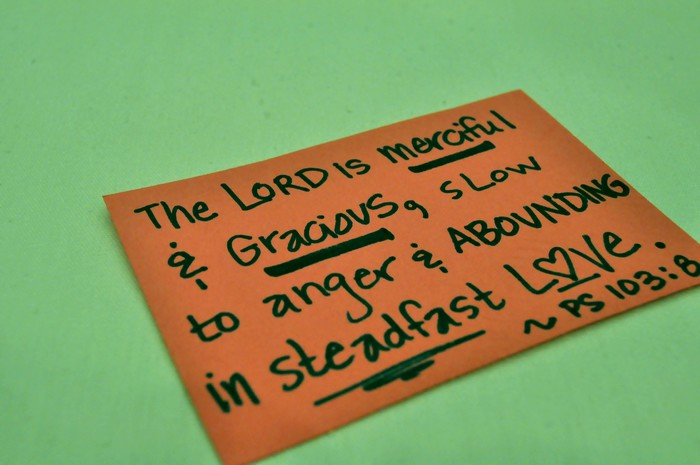 The LORD is merciful
& Gracious, sLow
to anger & ABOUNDING
in steadfast LOVe.
~ PS 103:8